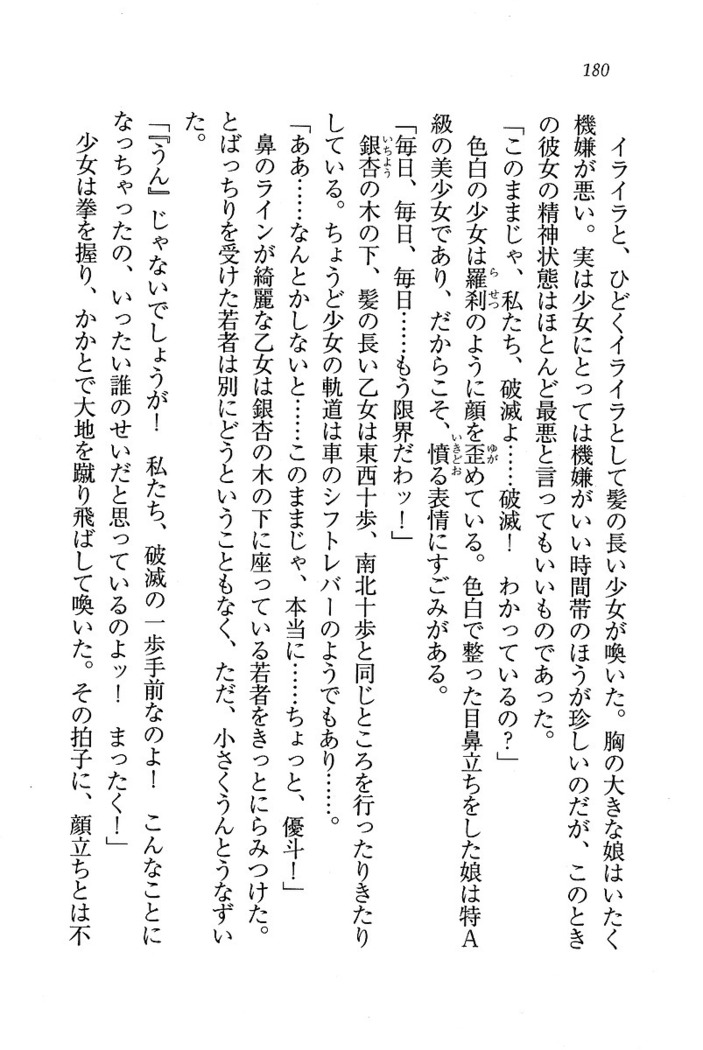 180
イライラと、ひどくイライラとして髪の長い少女が喚いた。胸の大きな娘はいたく
機嫌が悪い。実は少女にとっては機嫌がいい時間帯のほうが珍しいのだが、このとき
の彼女の精神状態はほとんど最悪と言ってもいいものであった。
「このままじゃ、私たち、破滅よ……破滅！　わかっているの？」
色白の少女は羅刹のように顔を歪めている。色白で整った目鼻立ちをした娘は特Ａ
級の美少女であり、だからこそ、憤る表情にすごみがある。
「毎日、毎日、毎日……もう限界だわッ！」
銀杏の木の下、髪の長い乙女は東西十歩、南北十歩と同じところを行ったりきたり
している。ちょうど少女の軌道は車のシフトレバーのようでもあり……。
「ああ……なんとかしないと……このままじゃ、本当に……ちょっと、優斗！」
鼻のラインが綺麗な乙女は銀杏の木の下に座っている若者をきっとにらみつけた。
とばっちりを受けた若者は別にどうということもなく、ただ、小さくうんとうなずい
た。
「『うん』じゃないでしょうが！　私たち、破滅の一歩手前なのよ！　こんなことに
なっちゃったの、いったい誰のせいだと思っているのよッ！　まったく！」
少女は拳を握り、かかとで大地を蹴り飛ばして喚いた。その拍子に、顔立ちとは不